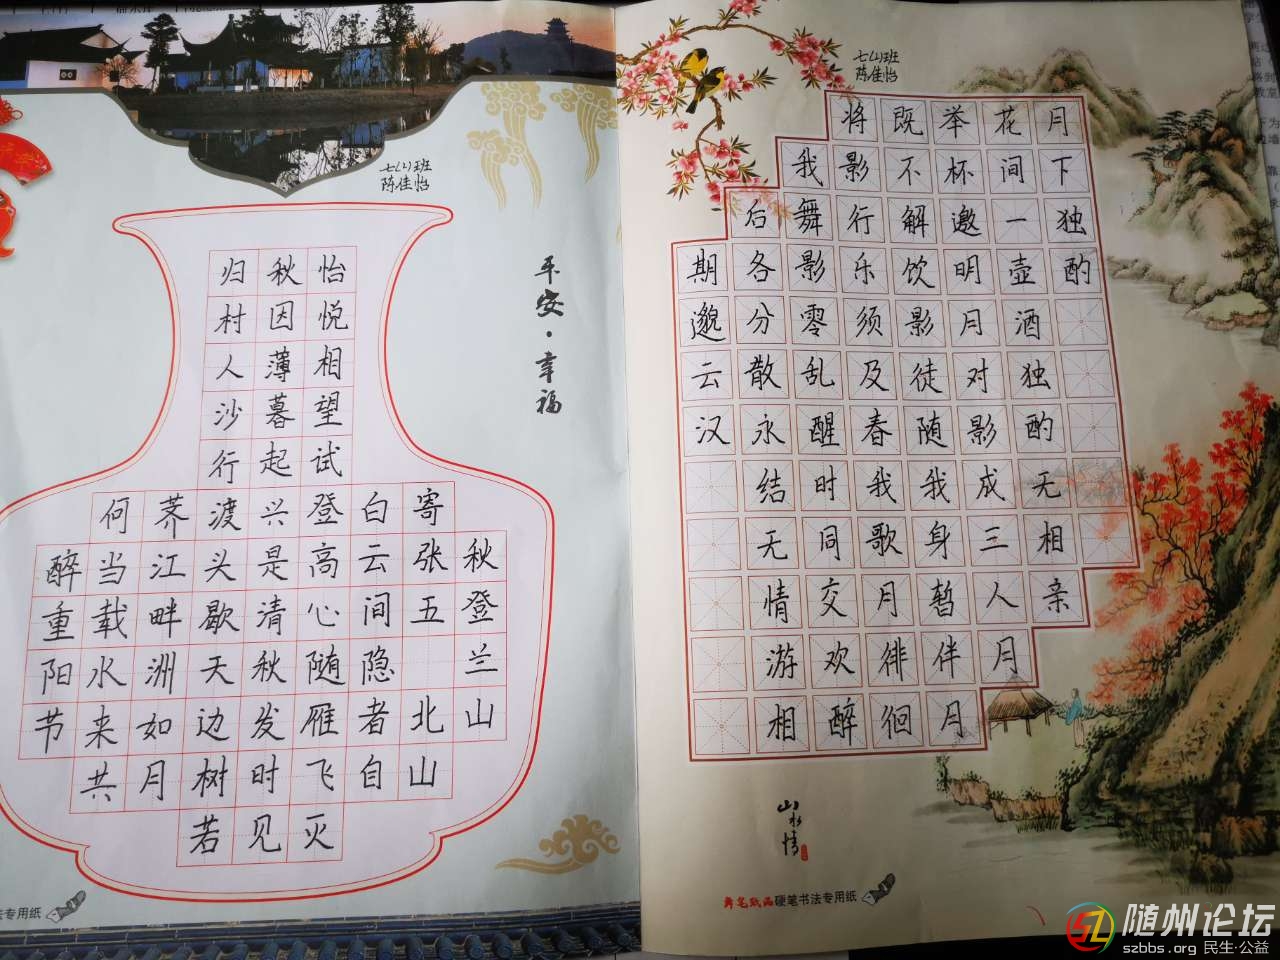 七(2)班
陈佳怡
秋登兰山
寄张五北山
白云间隐者自
怡悦相望试登高心随雁飞灭
秋因薄暮起兴是清秋发时见
归村人沙行渡头歇天边树若
荠江畔洲如月
何当载水来共
醉重阳节
平安·幸福
法专用纸
七(2)班
陈佳怡
月下独酌
花间一壶酒独酌无相亲
举杯邀明月对影成三人月
既不解饮影徒随我身暂伴月
将影行乐须及春我歌月徘徊
我舞影零乱醒时同交欢醉
后各分散永结无情游相
期邈云汉
山水情
硬笔书法专用纸
随州论坛
szbbs.org 民生·公益